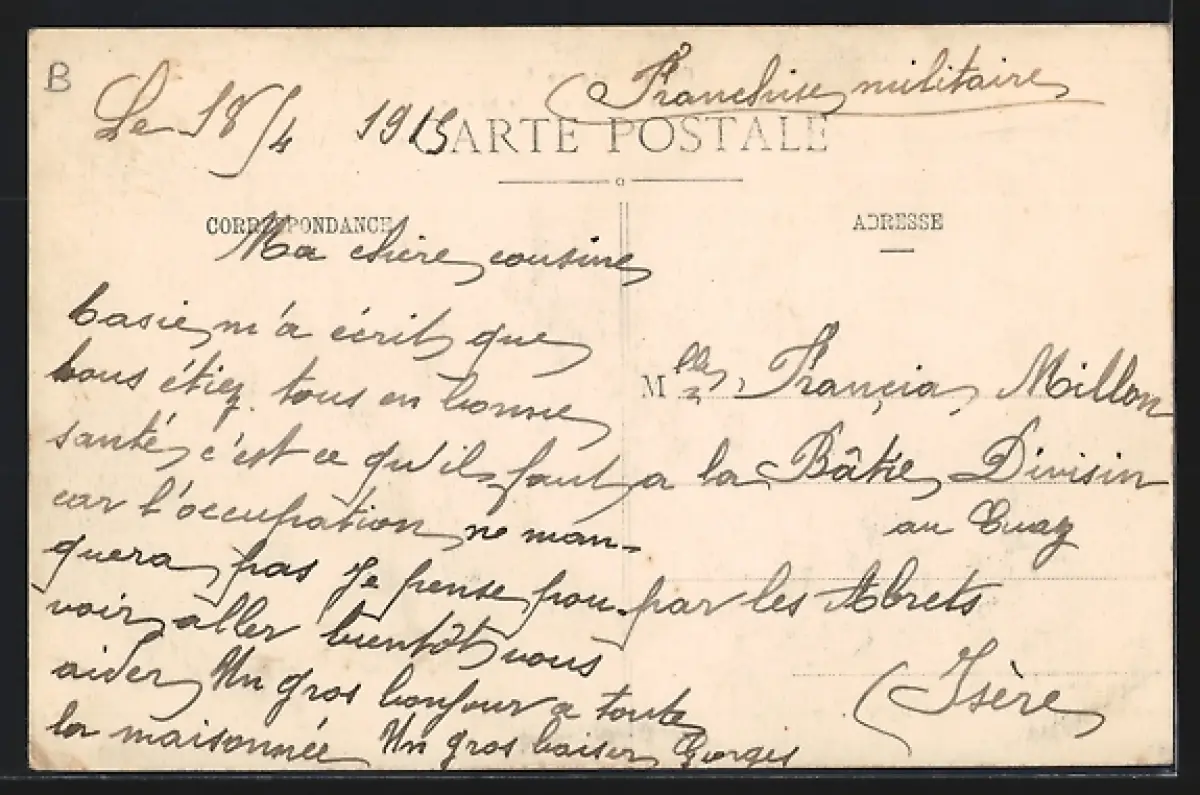 B
Franchise militaire
Le 18/4 1915
CARTE POSTALE
CORRESPONDANCE
Ma chère cousine
m'a écrit que
vous étiez tous en bonne
santé c'est ce qu'il faut
car l'occupation ne man-
quera pas Je pense pou-
voir aller bientôt vous
aider Un gros bonjour a toute
la maisonnée Un gros baiser Georges
ADRESSE
Mlle Francia Millon
a la Bâtie Divisin
au Cuaz
par les Abrets
(Isère